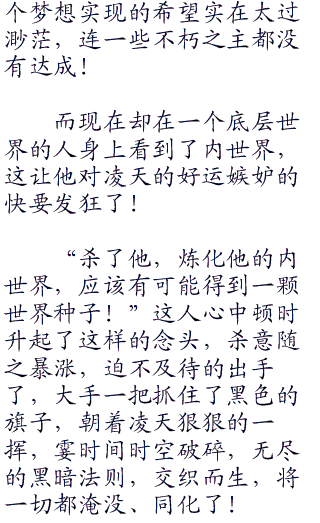 个梦想实现的希望实在太过
渺茫，连一些不朽之主都没
有达成！
而现在却在一个底层世
界的人身上看到了内世界，
这让他对凌天的好运嫉妒的
快要发狂了！
“杀了他，炼化他的内
世界，应该有可能得到一颗
世界种子！”这人心中顿时
升起了这样的念头，杀意随
之暴涨，迫不及待的出手
了，大手一把抓住了黑色的
旗子，朝着凌天狠狠的一
挥，霎时间时空破碎，无尽
的黑暗法则，交织而生，将
一切都淹没、同化了！